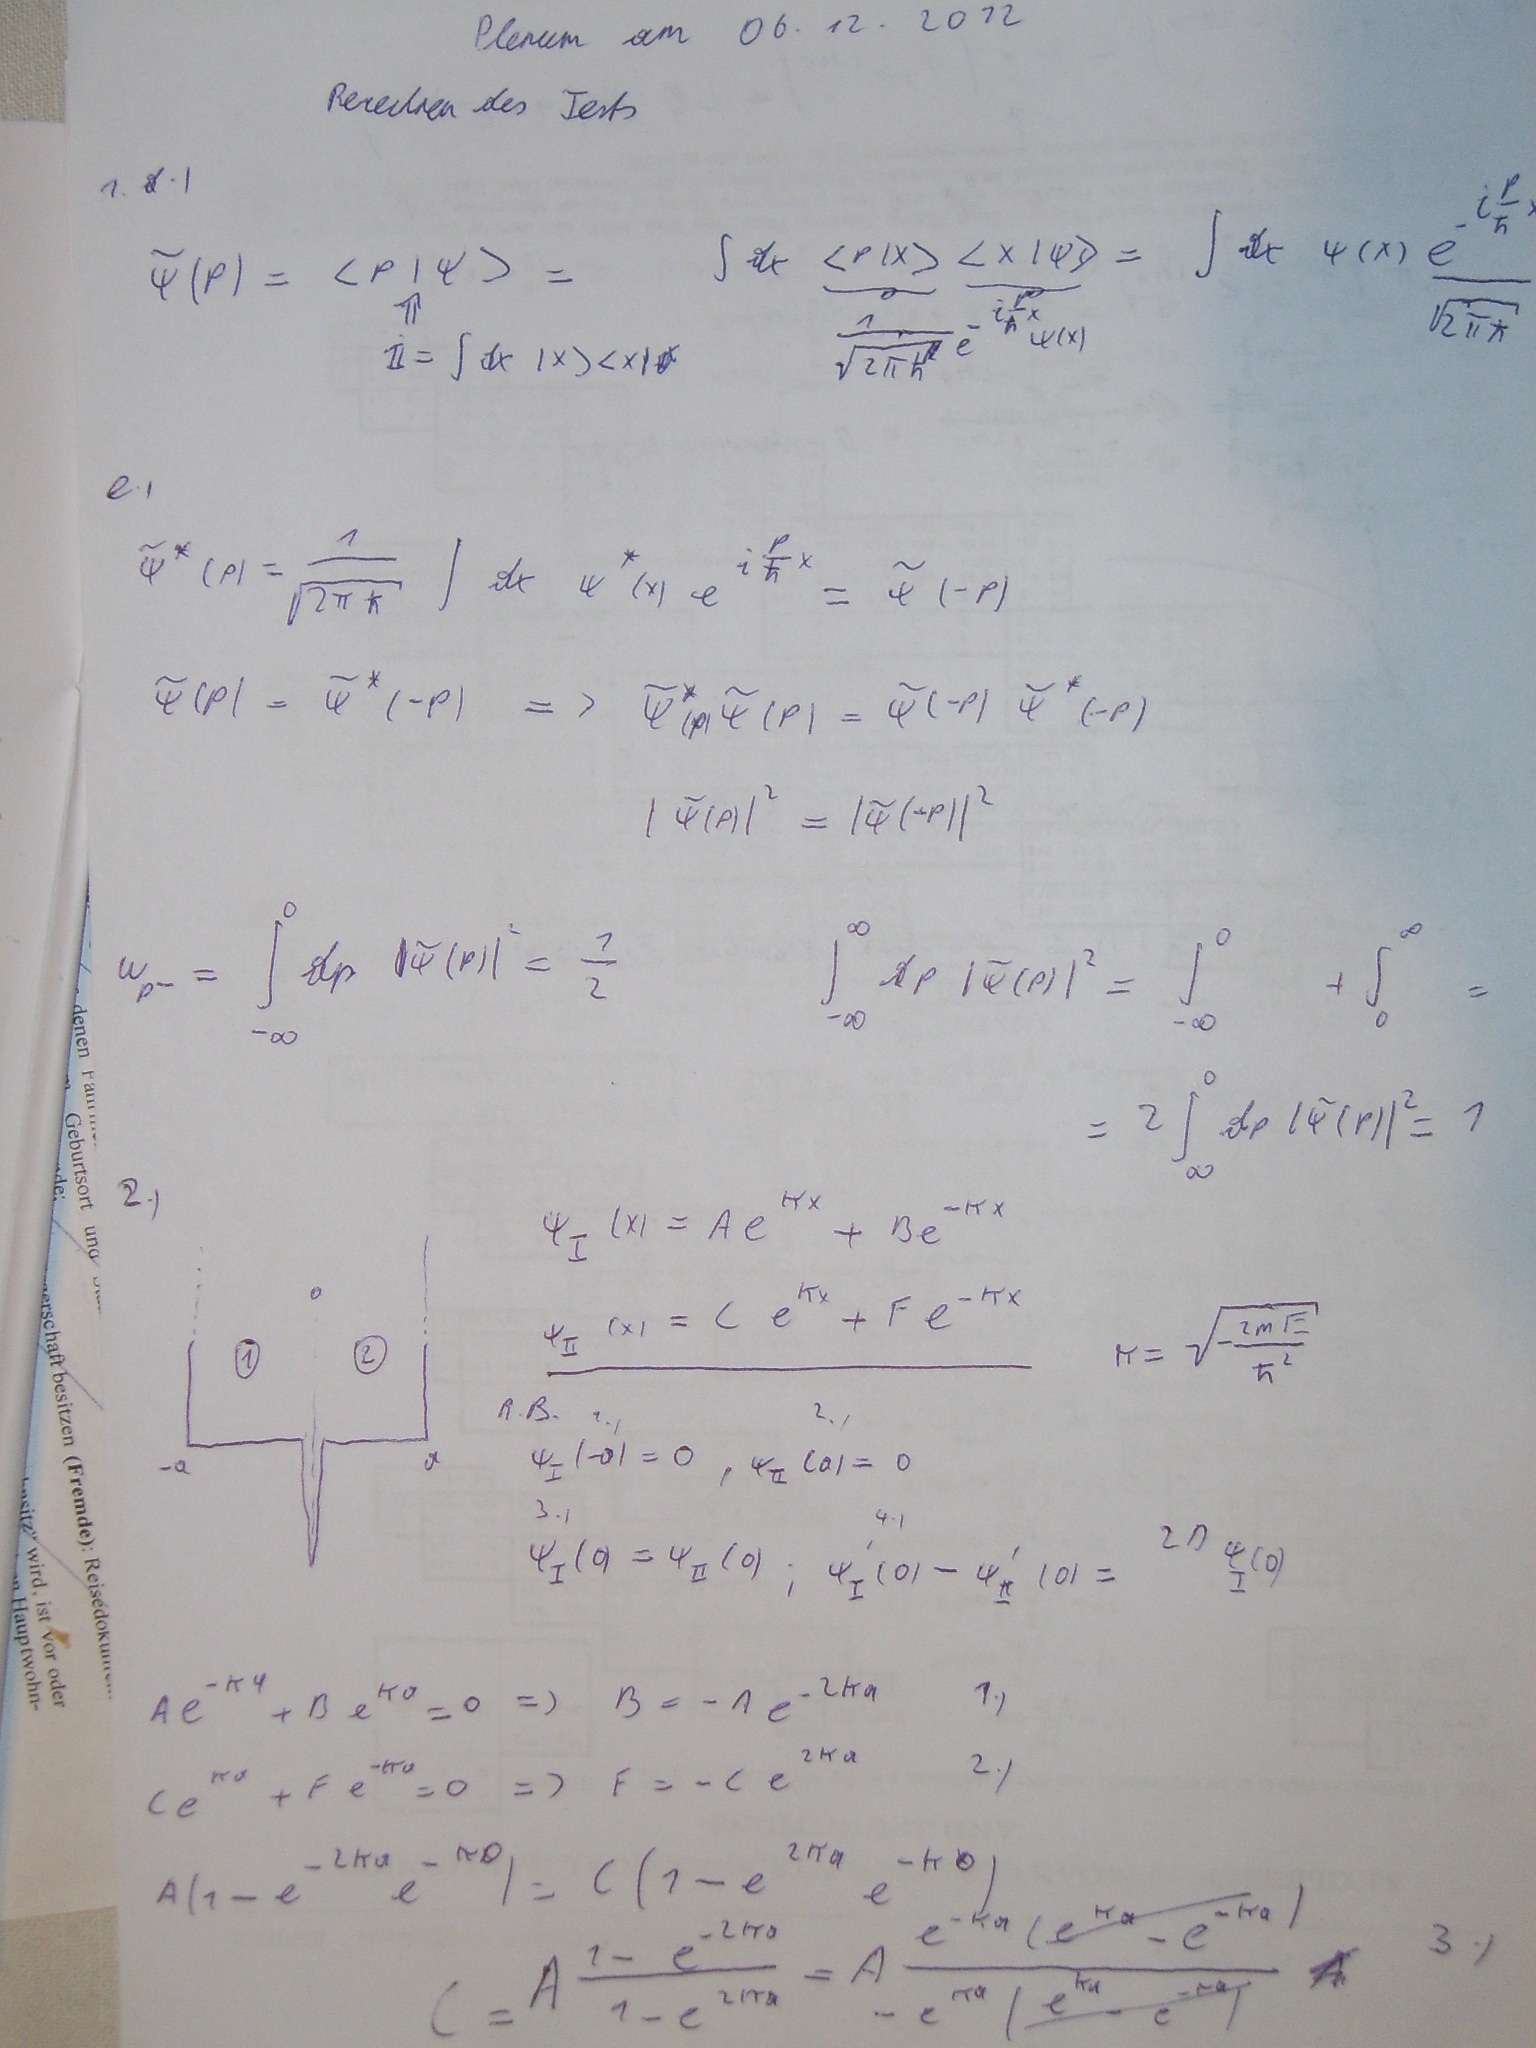 Plenum am 06.12.2012
Rechnen des Tests
1. d.)
ψ̃(p) = <p|ψ> = ∫dx <p|x> <x|ψ> = ∫dx ψ(x) e^(-i p/ħ x) / √(2πħ)
⇑ 1/√(2πħ) e^(-i p/ħ x) ψ(x)
𝟙 = ∫dx |x><x|
e.)
ψ̃*(p) = 1/√(2πħ) ∫ dx ψ*(x) e^(i p/ħ x) = ψ̃(-p)
ψ̃(p) = ψ̃*(-p) => ψ̃*(p) ψ̃(p) = ψ̃(-p) ψ̃*(-p)
|ψ̃(p)|² = |ψ̃(-p)|²
w_p- = ∫_(-∞)^0 dp |ψ̃(p)|² = 1/2 ∫_(-∞)^∞ dp |ψ̃(p)|² = ∫_(-∞)^0 + ∫_0^∞ =
= 2 ∫_∞^0 dp |ψ̃(p)|² = 1
2.)
ψ_I (x) = A e^(κx) + B e^(-κx)
0
ψ_II (x) = C e^(κx) + F e^(-κx)
① ② κ = √(-2mE/ħ²)
R.B. 1.) 2.)
-a a ψ_I(-a) = 0 , ψ_II(a) = 0
3.) 4.)
ψ_I(0) = ψ_II(0) ; ψ_I'(0) - ψ_II'(0) = 2D ψ_I(0)
A e^(-κa) + B e^(κa) = 0 => B = -A e^(-2κa) 1.)
C e^(κa) + F e^(-κa) = 0 => F = -C e^(2κa) 2.)
A(1 - e^(-2κa) e^(-κ0)) = C(1 - e^(2κa) e^(-κ0))
C = A (1 - e^(-2κa))/(1 - e^(2κa)) = A e^(-κa)(e^(κa) - e^(-κa)) / -e^(κa)(e^(κa) - e^(-κa)) 3.)
denen
Geburtsort und
nde;
gerschaft besitzen (Fremde): Reisedokum
wird, ist vor oder
Hauptwohn-